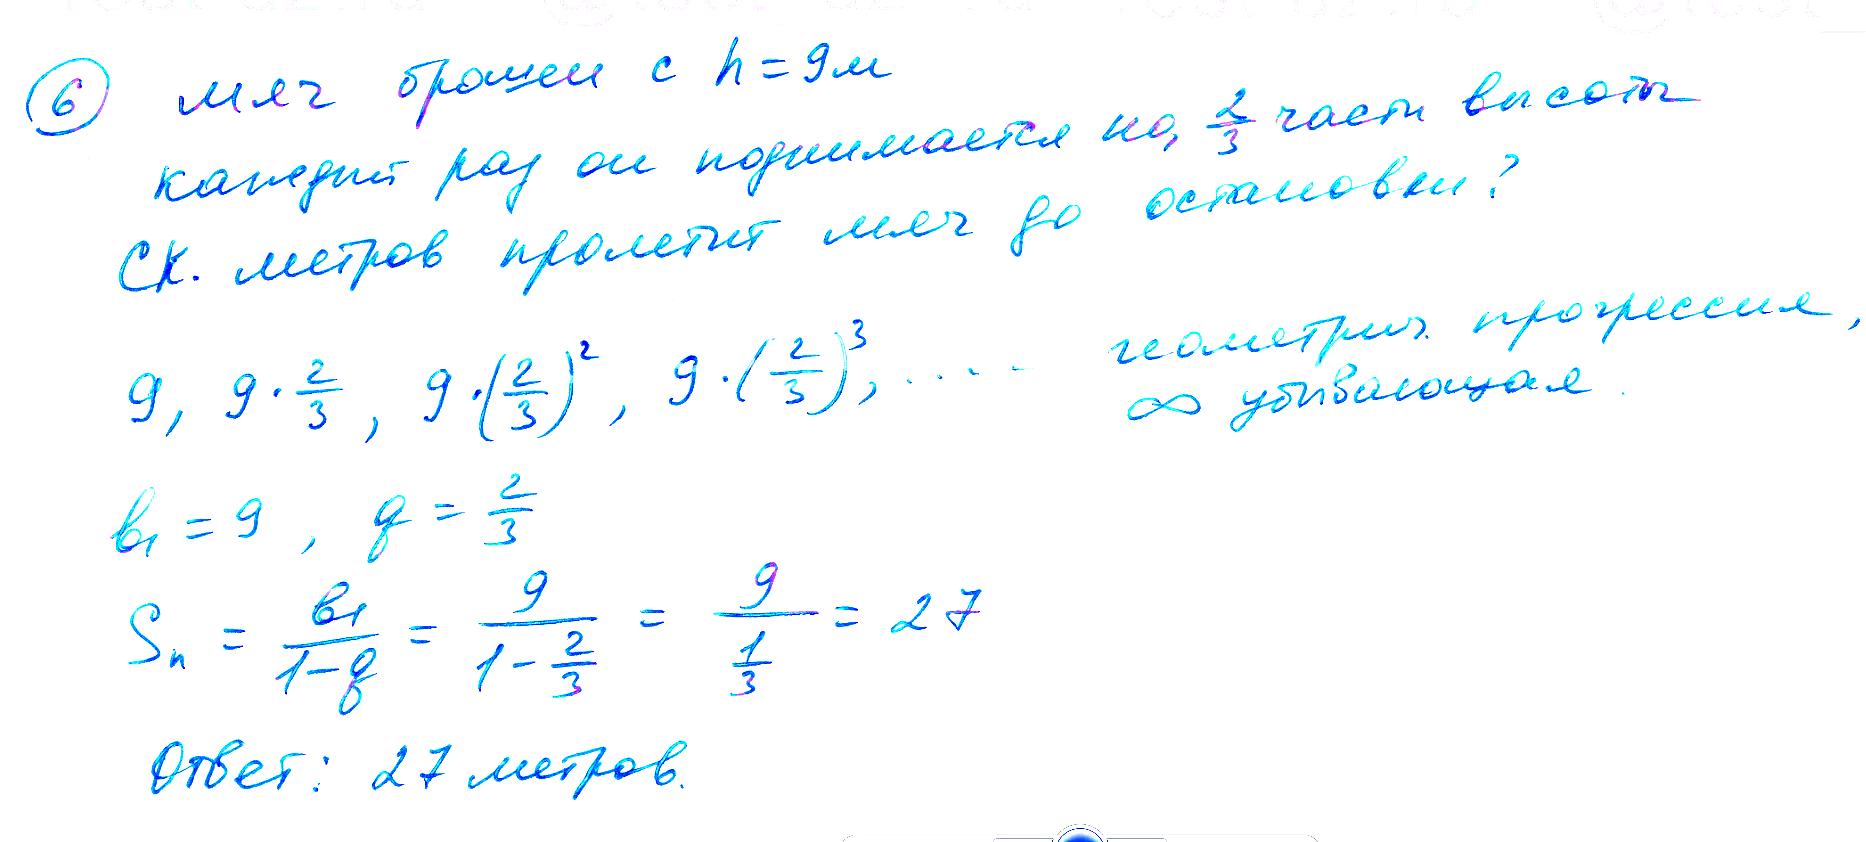 6 мяч брошен с h = 9м
каждый раз он поднимается на 2/3 части высоты
Ск. метров пролетит мяч до остановки?
9, 9·2/3, 9·(2/3)², 9·(2/3)³, .... геометрич. прогрессия,
∞ убывающая.
b₁ = 9, q = 2/3
Sₙ = b₁/(1-q) = 9/(1-2/3) = 9/(1/3) = 27
Ответ: 27 метров.